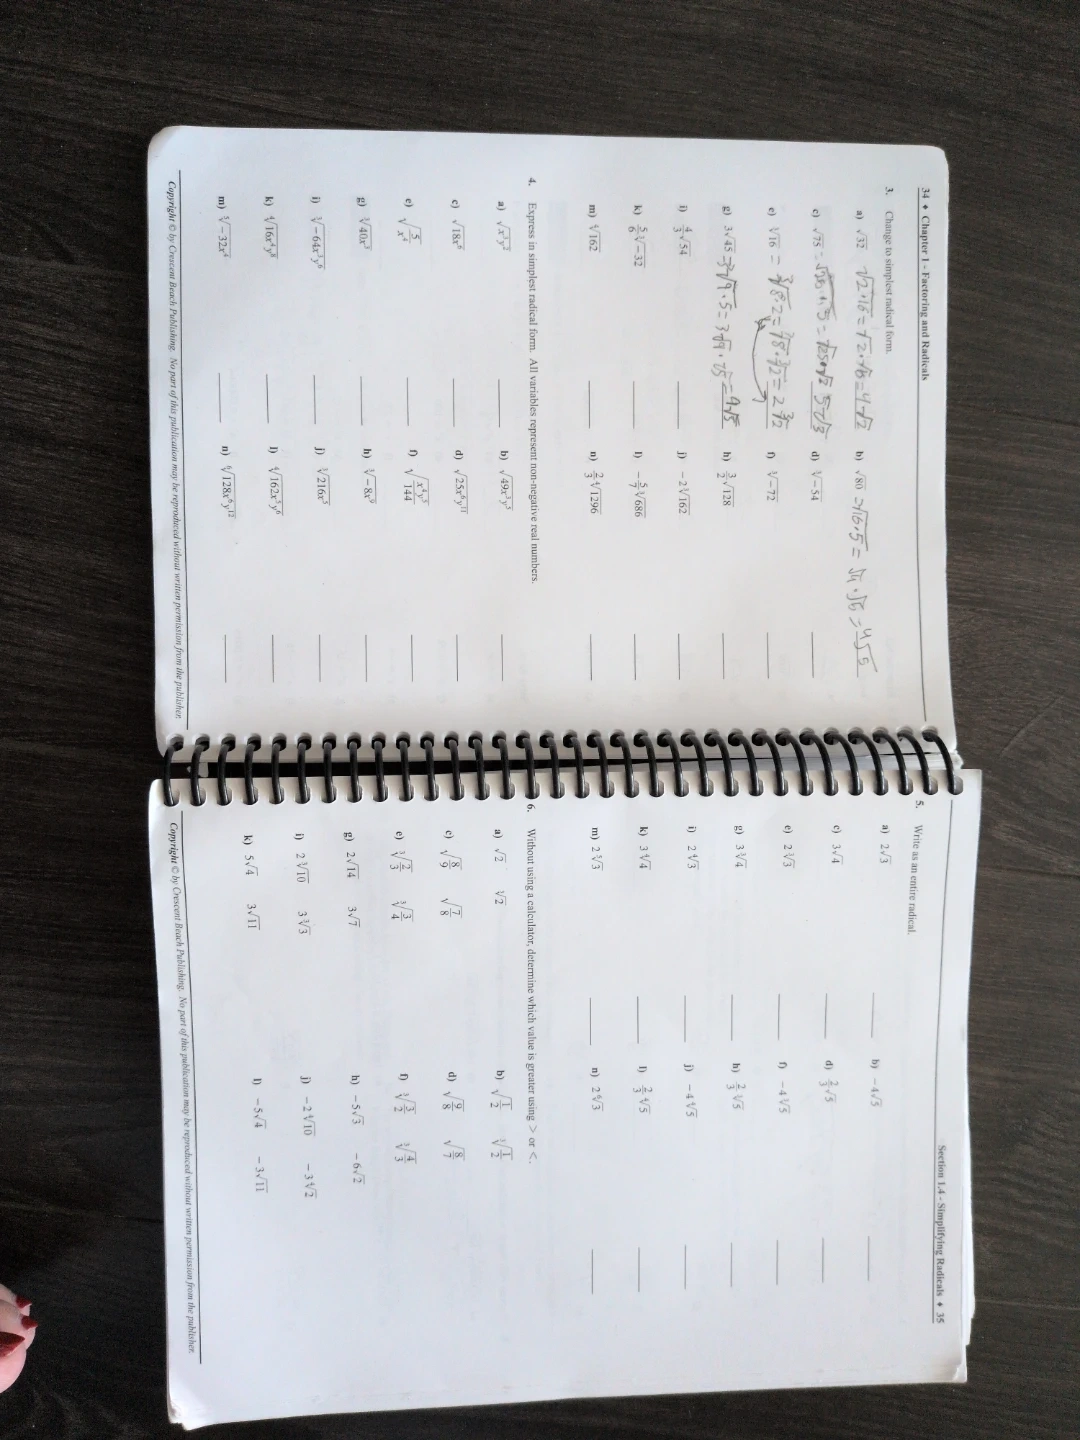 34 ♦ Chapter 1 - Factoring and Radicals
3. Change to simplest radical form.
a) √32 √2·16 = √2·√16 = 4√2 b) √80 = √16·5 = √4·√5 = 4√5
c) √75 = 5√3 d) ∛-54
e) ∛16 = ∛8·2 = ∛8·∛2 = 2∛2 f) ∛-72
g) 3√45 = 3√9·5 = 3√9·√5 = 9√5 h) 3/2 √128
i) 4/3 √54 j) -2∛162
k) 5/6 ∛-32 l) -5/7 ∛686
m) ∜162 n) 2/3 ∜1296
4. Express in simplest radical form. All variables represent non-negative real numbers.
a) b) √49x³y⁵
c) √18x⁶ d) √25x⁶y¹¹
e) f)
g) ∛40x³ h) ∛-8x⁹
i) ∛-64x³y⁶ j) ∛216x⁵
k) l) ∜162x⁵y⁶
m) n)
Copyright © by Crescent Beach Publishing. No part of this publication may be reproduced without written permission from the publisher.
Section 1.4 - Simplifying Radicals ♦ 35
5. Write as an entire radical.
a) 2√3 b) -4√3
c) 3√4 d) 2/3 √5
e) 2∛3 f) -4∛5
g) 3∛4 h) 2/3 ∛5
i) 2∜3 j) -4∜5
k) 3∜4 l) 2/3 ∜5
m) n)
6. Without using a calculator, determine which value is greater using > or <.
a) √2 ∛2 b) √1/2 ∛1/2
c) √8/9 √7/8 d) √9/8 √8/7
e) ∛2/3 ∛3/4 f) ∛3/2 ∛4/3
g) 2√14 3√7 h) -5√3 -6√2
i) 2∛10 3∛3 j) -2∜10 -3∜2
k) 5√4 3√11 l) -5√4 -3√11
Copyright © by Crescent Beach Publishing. No part of this publication may be reproduced without written permission from the publisher.